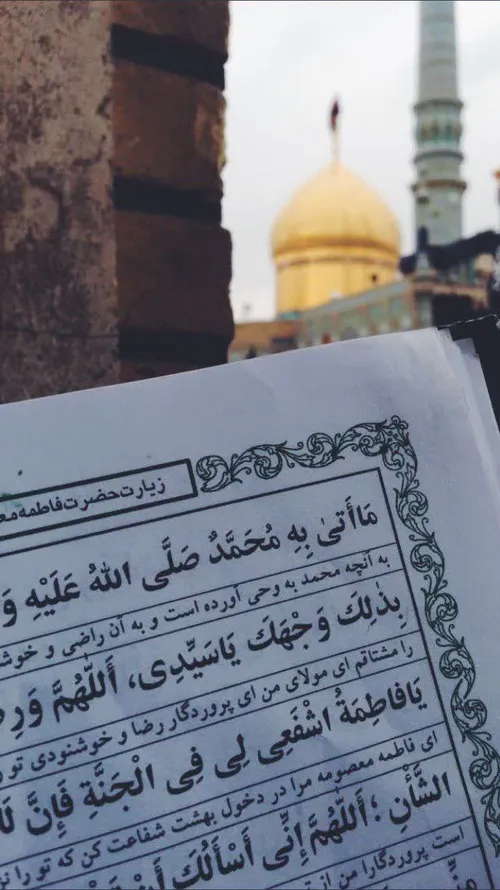 زیارت حضرت فاطمه
مَاأَتىٰ بِهِ مُحَمَّدٌ صَلَّى اللهُ عَلَيْهِ وَ
به آنچه محمد به وحی آورده است و به آن راضی و
بِذٰلِكَ وَجْهَكَ يَاسَيِّدِى، أَللّٰهُمَّ
را مشتاقم ای مولای من ای پروردگار رضا و خوشنودی
يَافاطِمَةُ اشْفَعِى لِى فِى الْجَنَّةِ فَإِنَّ
ای فاطمه معصومه مرا در دخول بهشت شفاعت کن که تو را
الشَّأْنِ ؛ أَللّٰهُمَّ إِنِّى أَسْأَلُكَ أَنْ
است پروردگارا من از